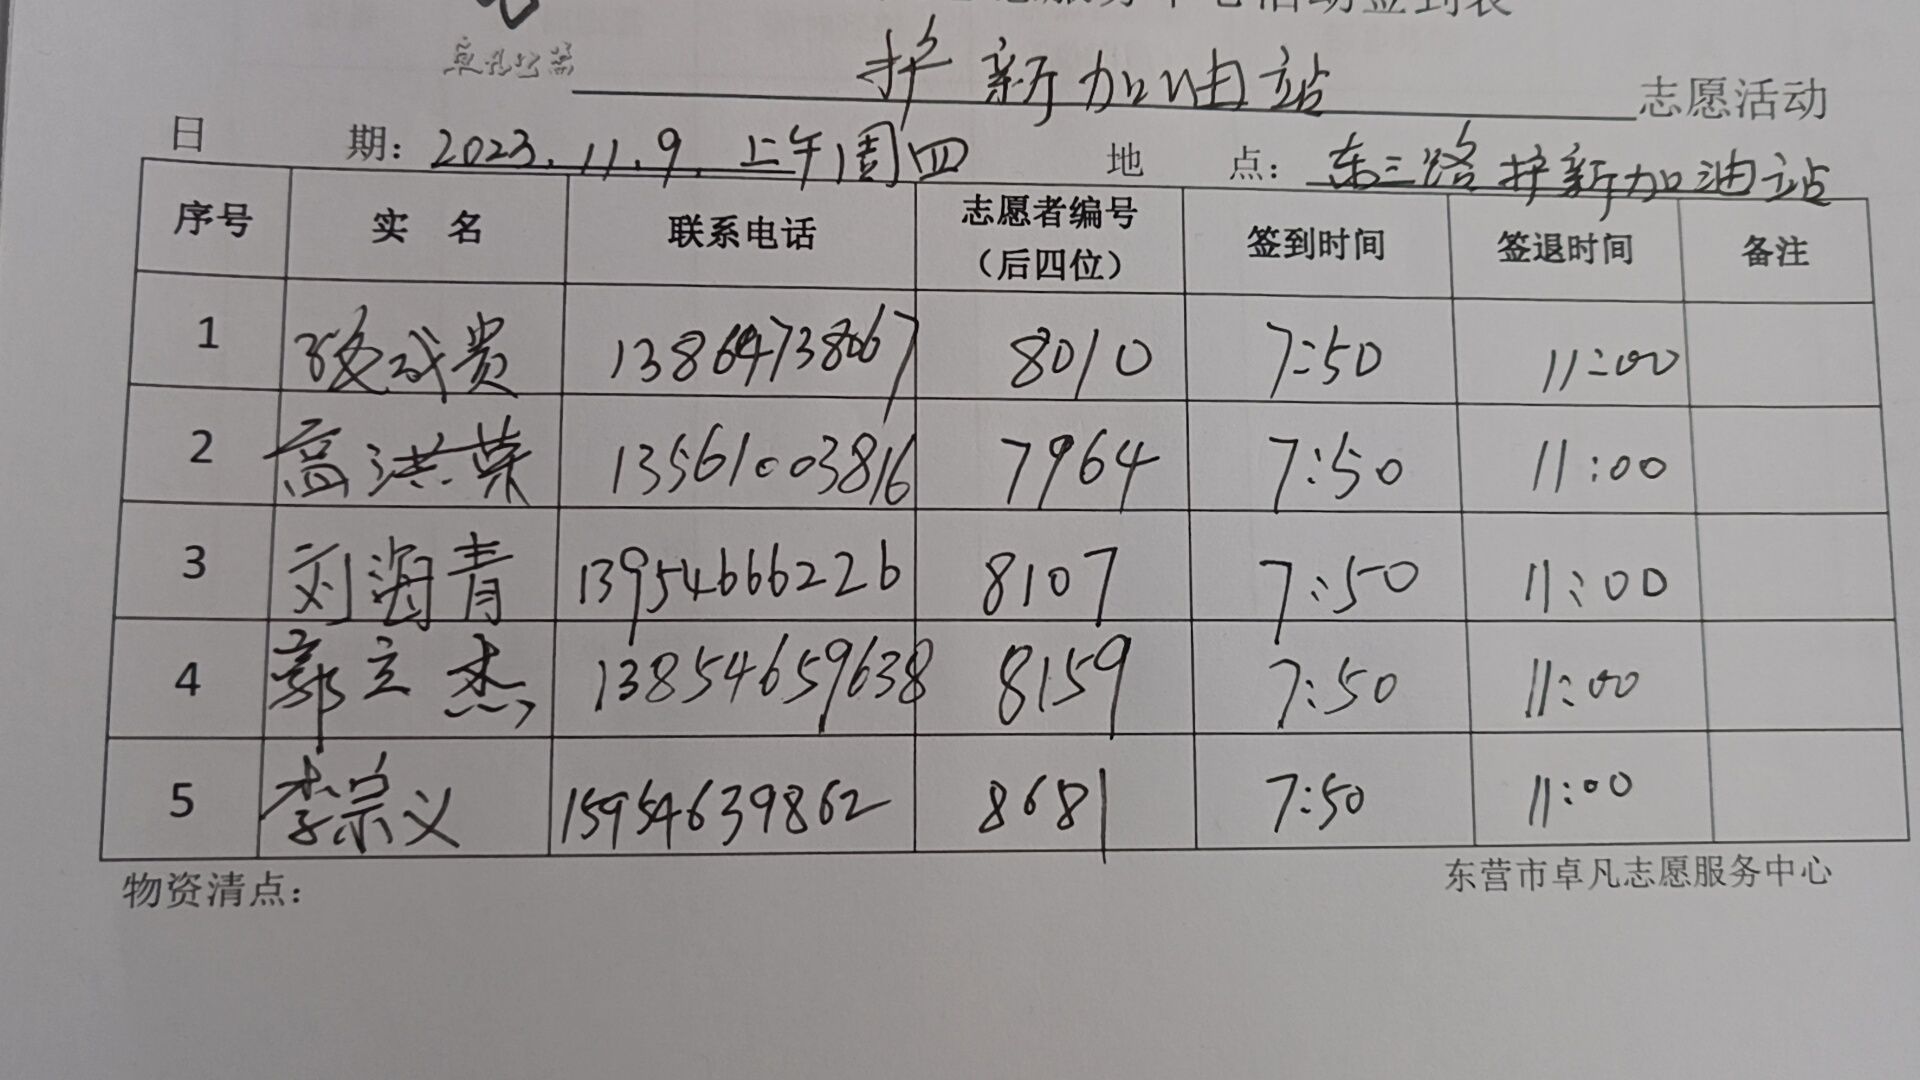 志愿服务中心活动签到表
卓凡公益
护新加油站 志愿活动
日 期：2023.11.9.上午周四 地 点：东三路护新加油站
序号 实 名 联系电话 志愿者编号（后四位） 签到时间 签退时间 备注
1 成贵 13864738067 8010 7:50 11:00
2 高洪荣 13561003816 7964 7:50 11:00
3 刘海青 13954666226 8107 7:50 11:00
4 郭立杰 13854659638 8159 7:50 11:00
5 李宗义 15954639862 8681 7:50 11:00
物资清点： 东营市卓凡志愿服务中心